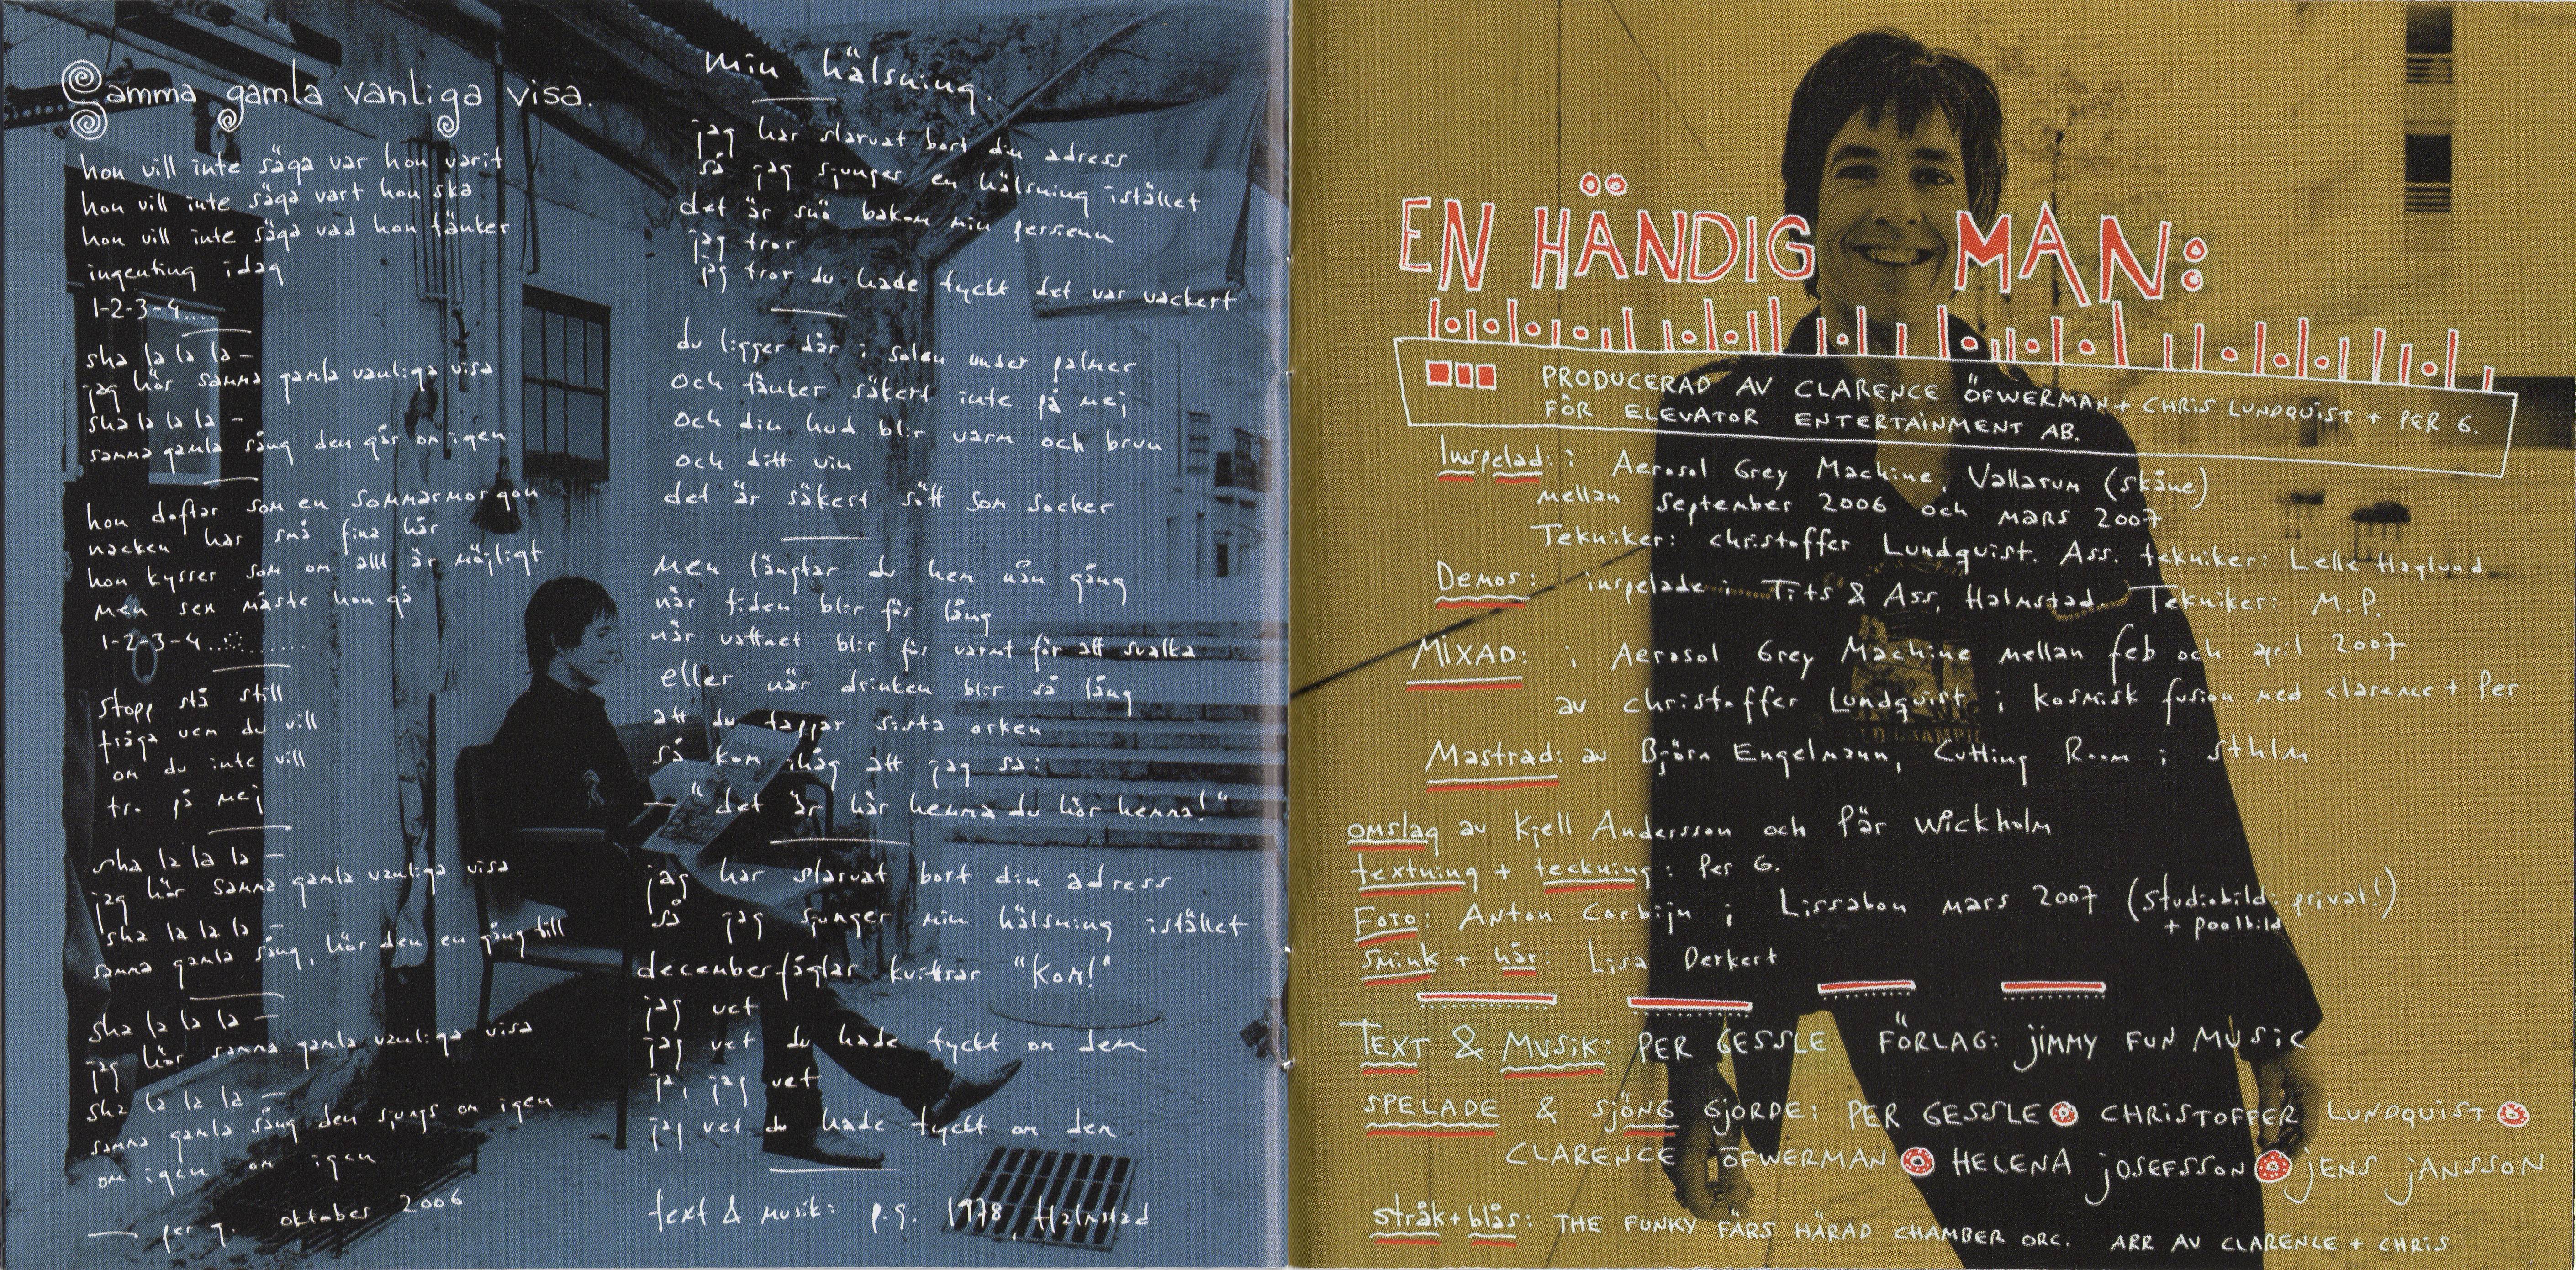 Samma gamla vanliga visa.
hon vill inte säga var hon varit
hon vill inte säga vart hon ska
hon vill inte säga vad hon tänker
ingenting idag
1-2-3-4....
sha la la la -
jag hör samma gamla vanliga visa
sha la la la -
samma gamla sång den går om igen
hon doftar som en sommarmorgon
nacken har små fina hår
hon kysser som om allt är möjligt
men sen måste hon gå
1-2-3-4...........
stopp stå still
fråga vem du vill
om du inte vill
tro på mej
sha la la la -
jag hör samma gamla vanliga visa
sha la la la -
samma gamla sång, hör den en gång till
sha la la la -
jag hör samma gamla vanliga visa
sha la la la -
samma gamla sång den sjungs om igen
om igen om igen
— per g. oktober 2006
min hälsning.
jag har slarvat bort din adress
så jag sjunger en hälsning istället
det är snö bakom min persienn
jag tror
jag tror du hade tyckt det var vackert
du ligger där i solen under palmer
och tänker säkert inte på mej
och din hud blir varm och brun
och ditt vin
det är säkert sött som socker
men längtar du hem nån gång
när tiden blir för lång
när vattnet blir för varmt för att svalka
eller när drinken blir så lång
att du tappar sista orken
så kom ihåg att jag sa:
— "det är här hemma du hör hemma!"
jag har slarvat bort din adress
så jag sjunger min hälsning istället
decemberfåglar kvittrar "kom!"
jag vet
jag vet du hade tyckt om dem
ja, jag vet
jag vet du hade tyckt om dem
text & musik: p.g. 1978 Halmstad
EN HÄNDIG MAN:
PRODUCERAD AV CLARENCE ÖFWERMAN + CHRIS LUNDQUIST + PER G.
FÖR ELEVATOR ENTERTAINMENT AB.
Inspelad: i Aerosol Grey Machine, Vallarum (Skåne)
mellan september 2006 och mars 2007
Tekniker: christoffer Lundquist. Ass. tekniker: Lelle Haglund
Demos: inspelade i Tits & Ass, Halmstad. Tekniker: M.P.
MIXAD: i Aerosol Grey Machine mellan feb och april 2007
av christoffer Lundquist i kosmisk fusion med clarence + Per
Mastrad: av Björn Engelmann, Cutting Room i Sthlm
omslag av Kjell Andersson och Pär Wickholm
textning + teckning: Per G.
Foto: Anton Corbijn i Lissabon mars 2007 (studiobild: privat!)
+ poolbild
Smink + hår: Lisa Derkert
TEXT & MUSIK: PER GESSLE FÖRLAG: JIMMY FUN MUSIC
SPELADE & SJÖNG GJORDE: PER GESSLE CHRISTOFFER LUNDQUIST
CLARENCE ÖFWERMAN HELENA JOSEFSSON JENS JANSSON
stråk + blås: THE FUNKY FÄRS HÄRAD CHAMBER ORC. ARR AV CLARENCE + CHRIS